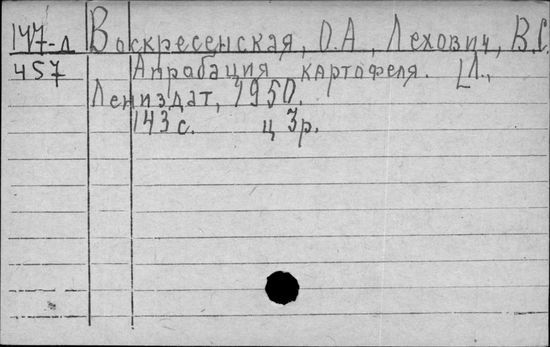 147-л Воскресенская, О.А., Лехович, В.С.
457 Апробация картофеля. [Л.,
Лениздат, 1950.
143 с. ц 3р.